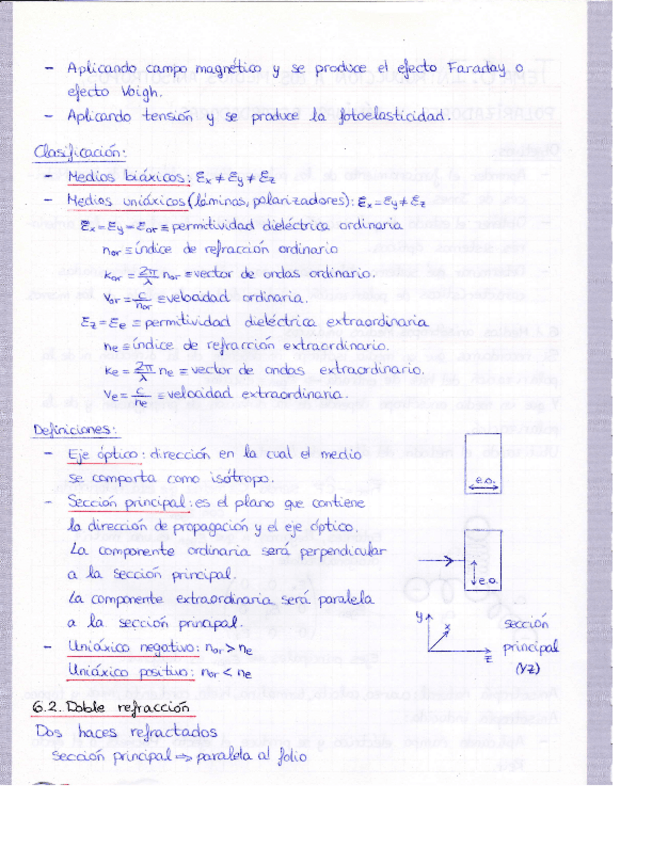 - Aplicando campo magnético y se produce el efecto Faraday o
efecto Voigh.
- Aplicando tensión y se produce la fotoelasticidad.
Clasificación:
- Medios biáxicos: εx ≠ εy ≠ εz
- Medios uniáxicos (láminas, polarizadores): εx = εy ≠ εz
εx = εy = εor ≡ permitividad dieléctrica ordinaria
nor ≡ índice de refracción ordinario
kor = 2π/λ nor ≡ vector de ondas ordinario.
vor = c/nor ≡ velocidad ordinaria.
εz = εe ≡ permitividad dieléctrica extraordinaria
ne ≡ índice de refracción extraordinario.
ke = 2π/λ ne ≡ vector de ondas extraordinario.
ve = c/ne ≡ velocidad extraordinaria.
Definiciones:
- Eje óptico: dirección en la cual el medio
se comporta como isótropo.
e.o.
- Sección principal: es el plano que contiene
la dirección de propagación y el eje óptico.
La componente ordinaria será perpendicular
a la sección principal.
e.o.
La componente extraordinaria será paralela
a la sección principal.
y x z
sección
principal
(YZ)
- Uniáxico negativo: nor > ne
Uniáxico positivo: nor < ne
6.2. Doble refracción
Dos haces refractados
sección principal ⇒ paralela al folio